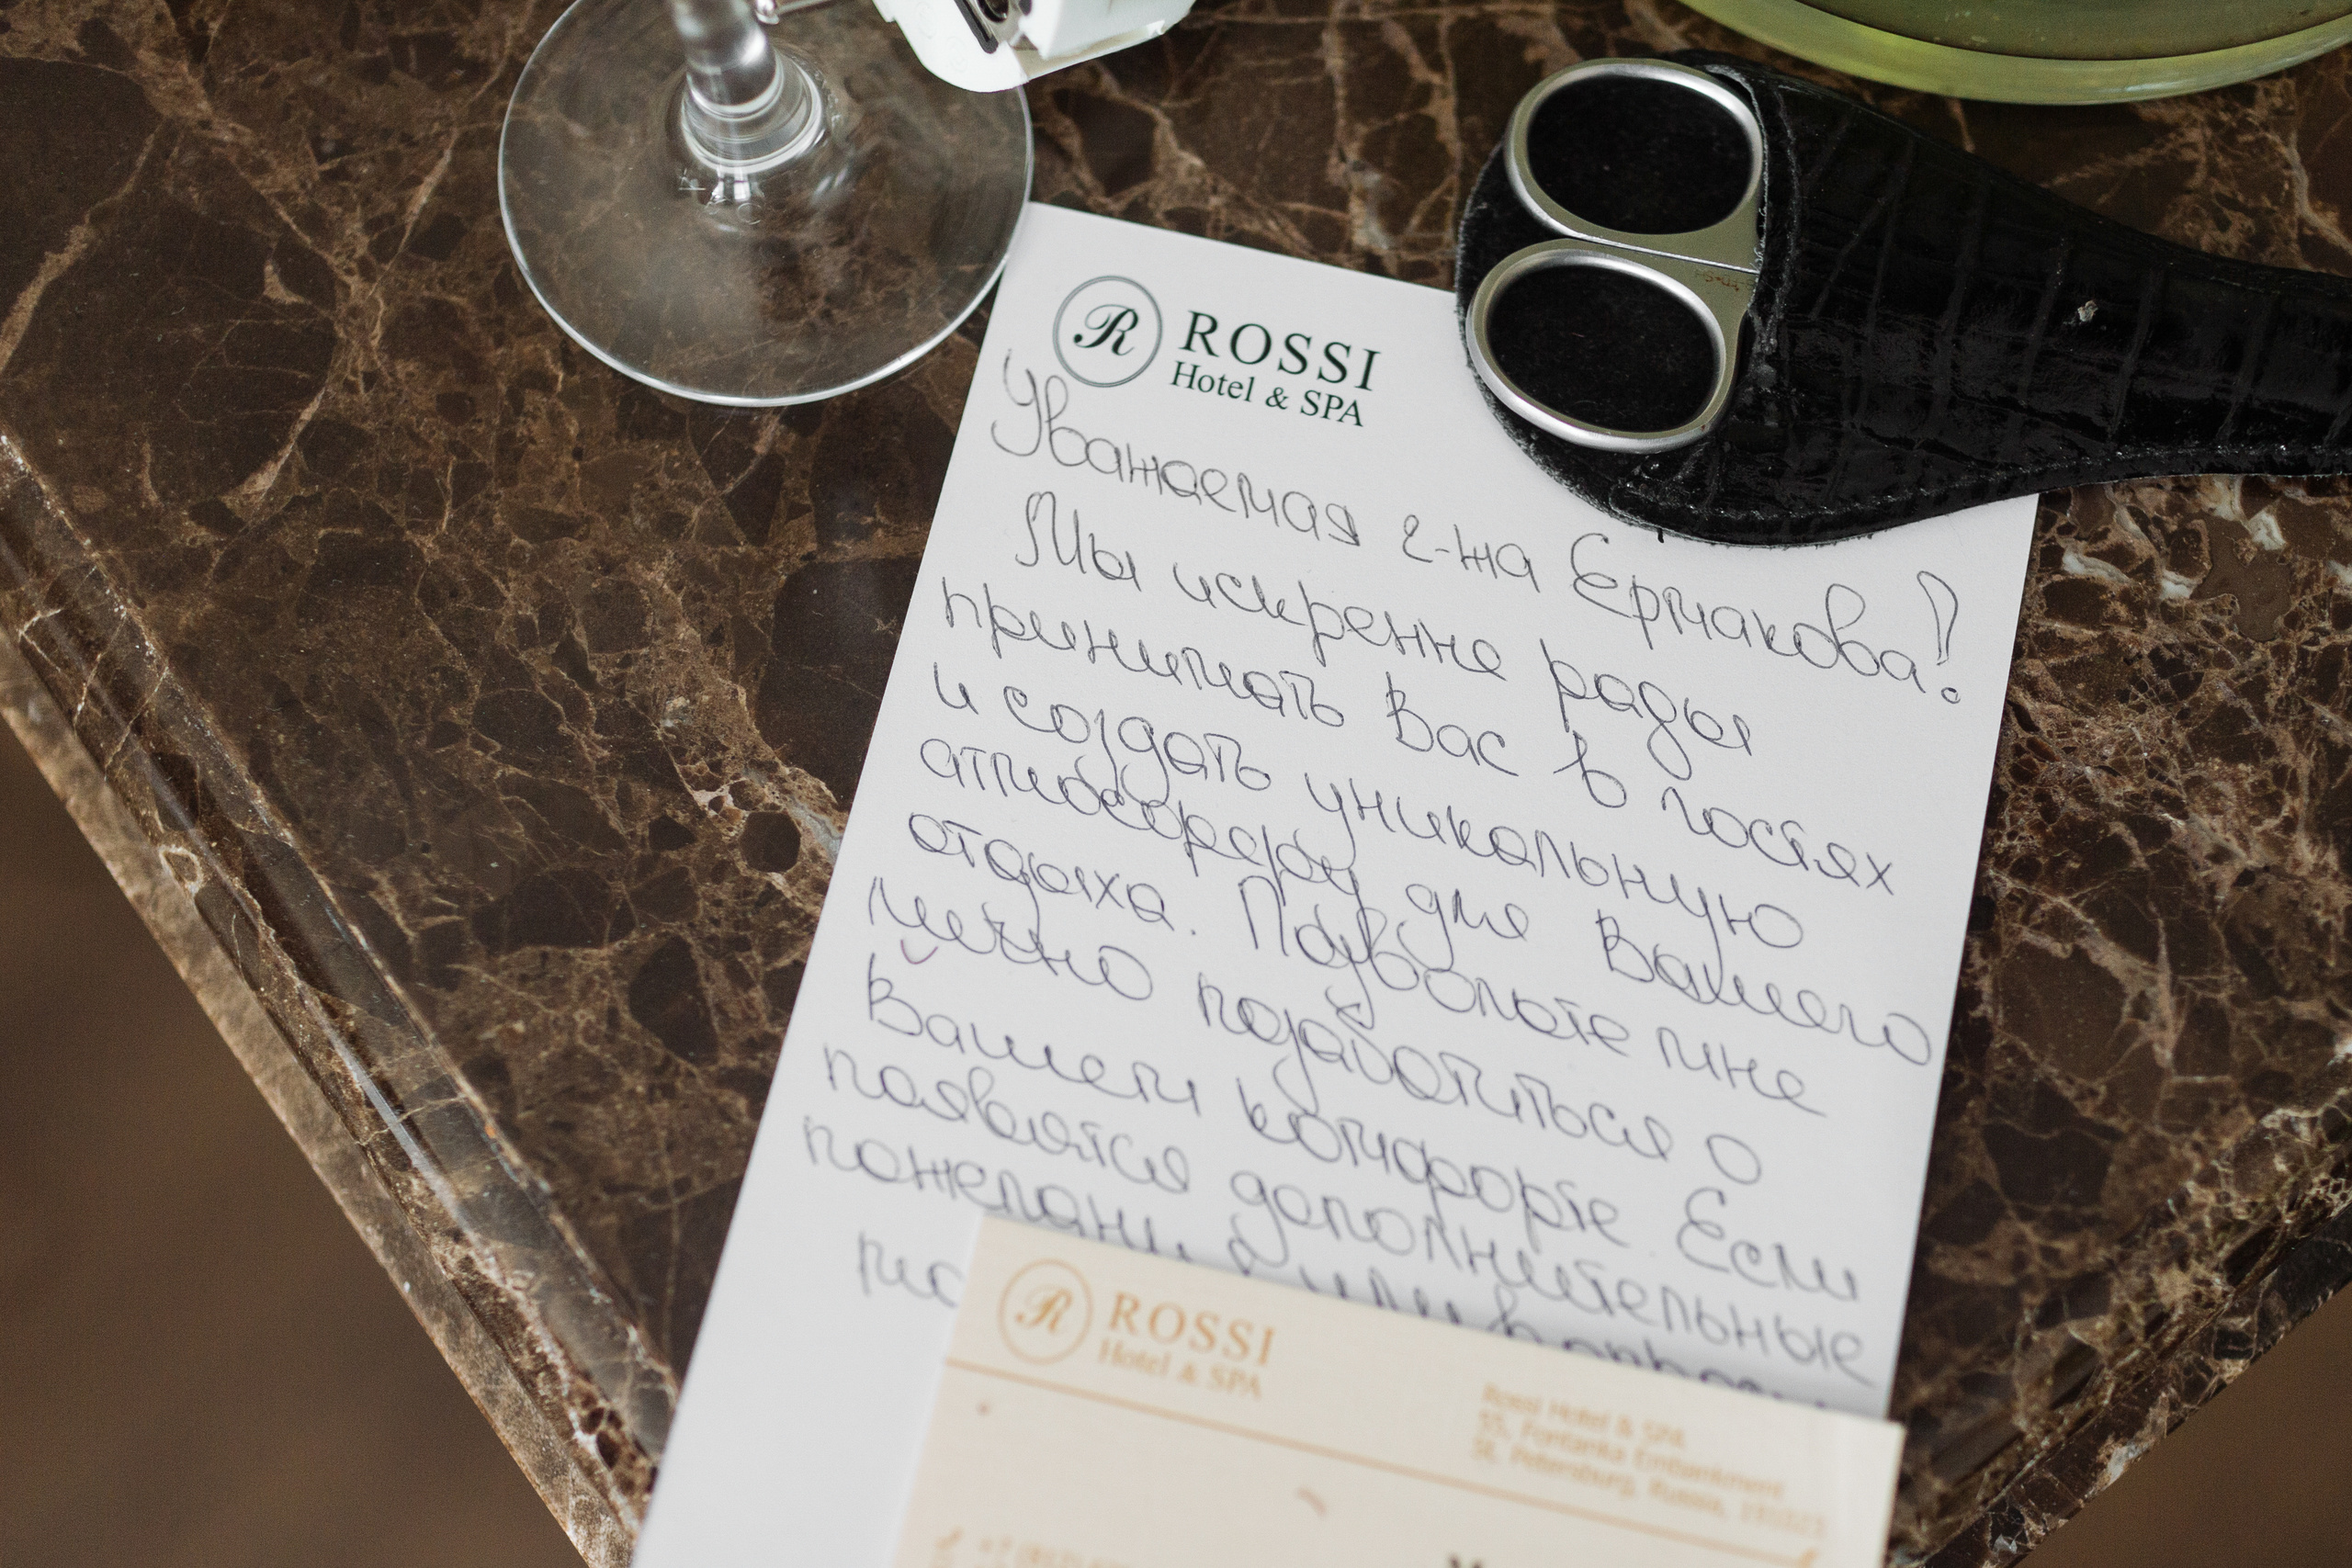 R
ROSSI
Hotel & SPA
Уважаемая г-жа Ермакова!
Мы искренне рады
принимать Вас в гостях
и создать уникальную
атмосферу для Вашего
отдыха. Позвольте мне
лично позаботиться о
Вашем комфорте. Если
появятся дополнительные
пожелания или
R
ROSSI
Hotel & SPA
Rossi Hotel & SPA
55, Fontanka Embankment
St. Petersburg, Russia,